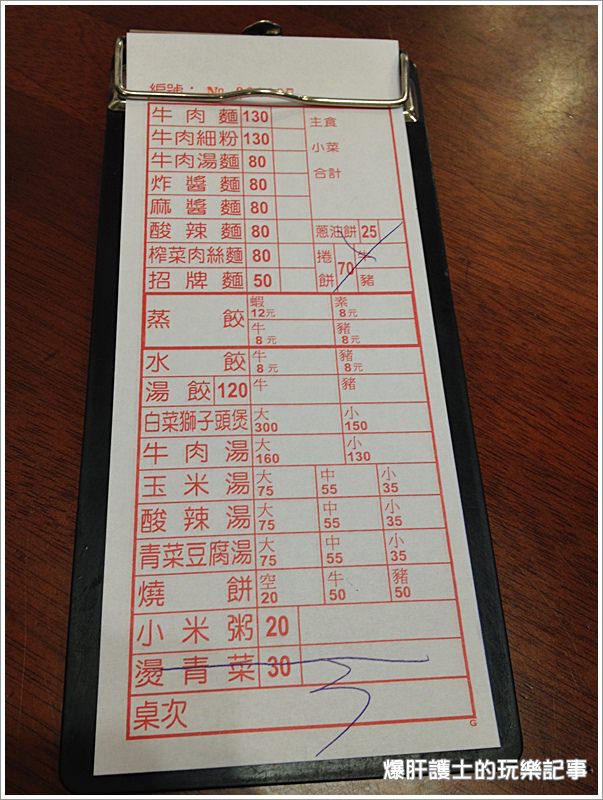 編號： №
牛肉麵 130 主食
牛肉細粉 130 小菜
牛肉湯麵 80 合計
炸醬麵 80
麻醬麵 80
酸辣麵 80 蔥油餅 25
榨菜肉絲麵 80 捲餅 70 牛
招牌麵 50 豬
蒸餃 蝦 12元 素 8元
牛 8元 豬 8元
水餃 牛 8元 豬 8元
湯餃 120 牛 豬
白菜獅子頭煲 大 300 小 150
牛肉湯 大 160 小 130
玉米湯 大 75 中 55 小 35
酸辣湯 大 75 中 55 小 35
青菜豆腐湯 大 75 中 55 小 35
燒餅 空 20 牛 50 豬 50
小米粥 20
燙青菜 30
桌次
G
爆肝護士的玩樂記事